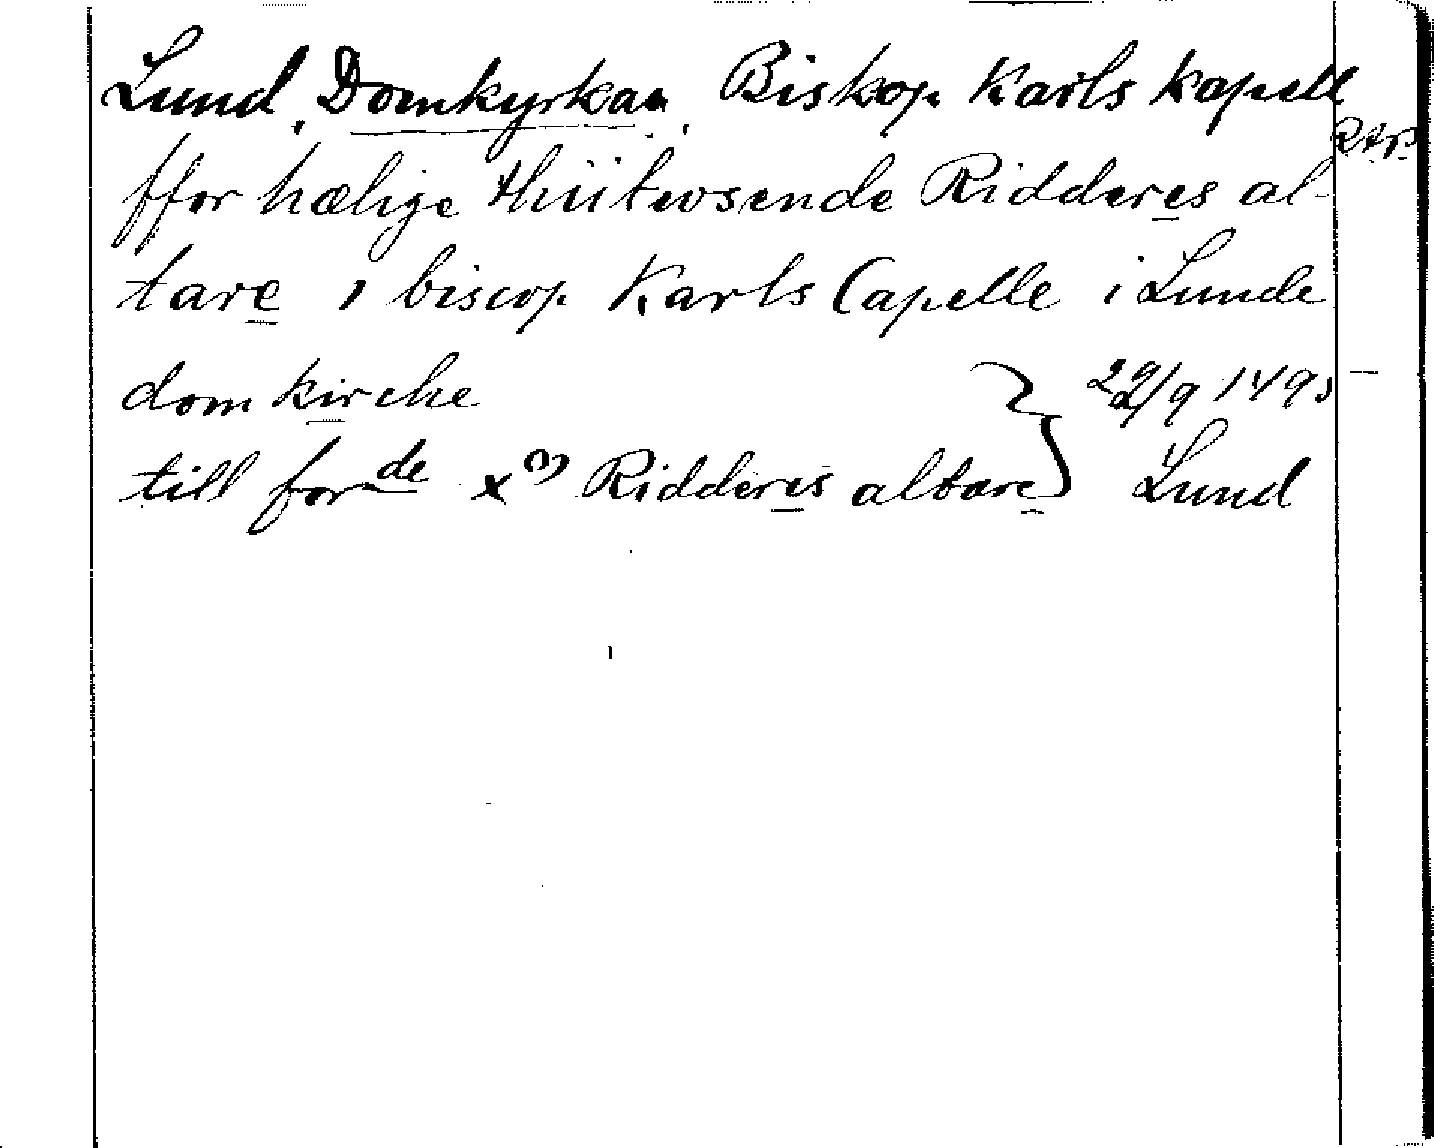 Lund, Domkyrkan, Biskop Karls kapell
ffor hælige thiitwsende Ridderes al-
tare i biscop Karls Capelle i Lunde
domkirche 29/9 1495
till forde x(m) Ridderes altare Lund